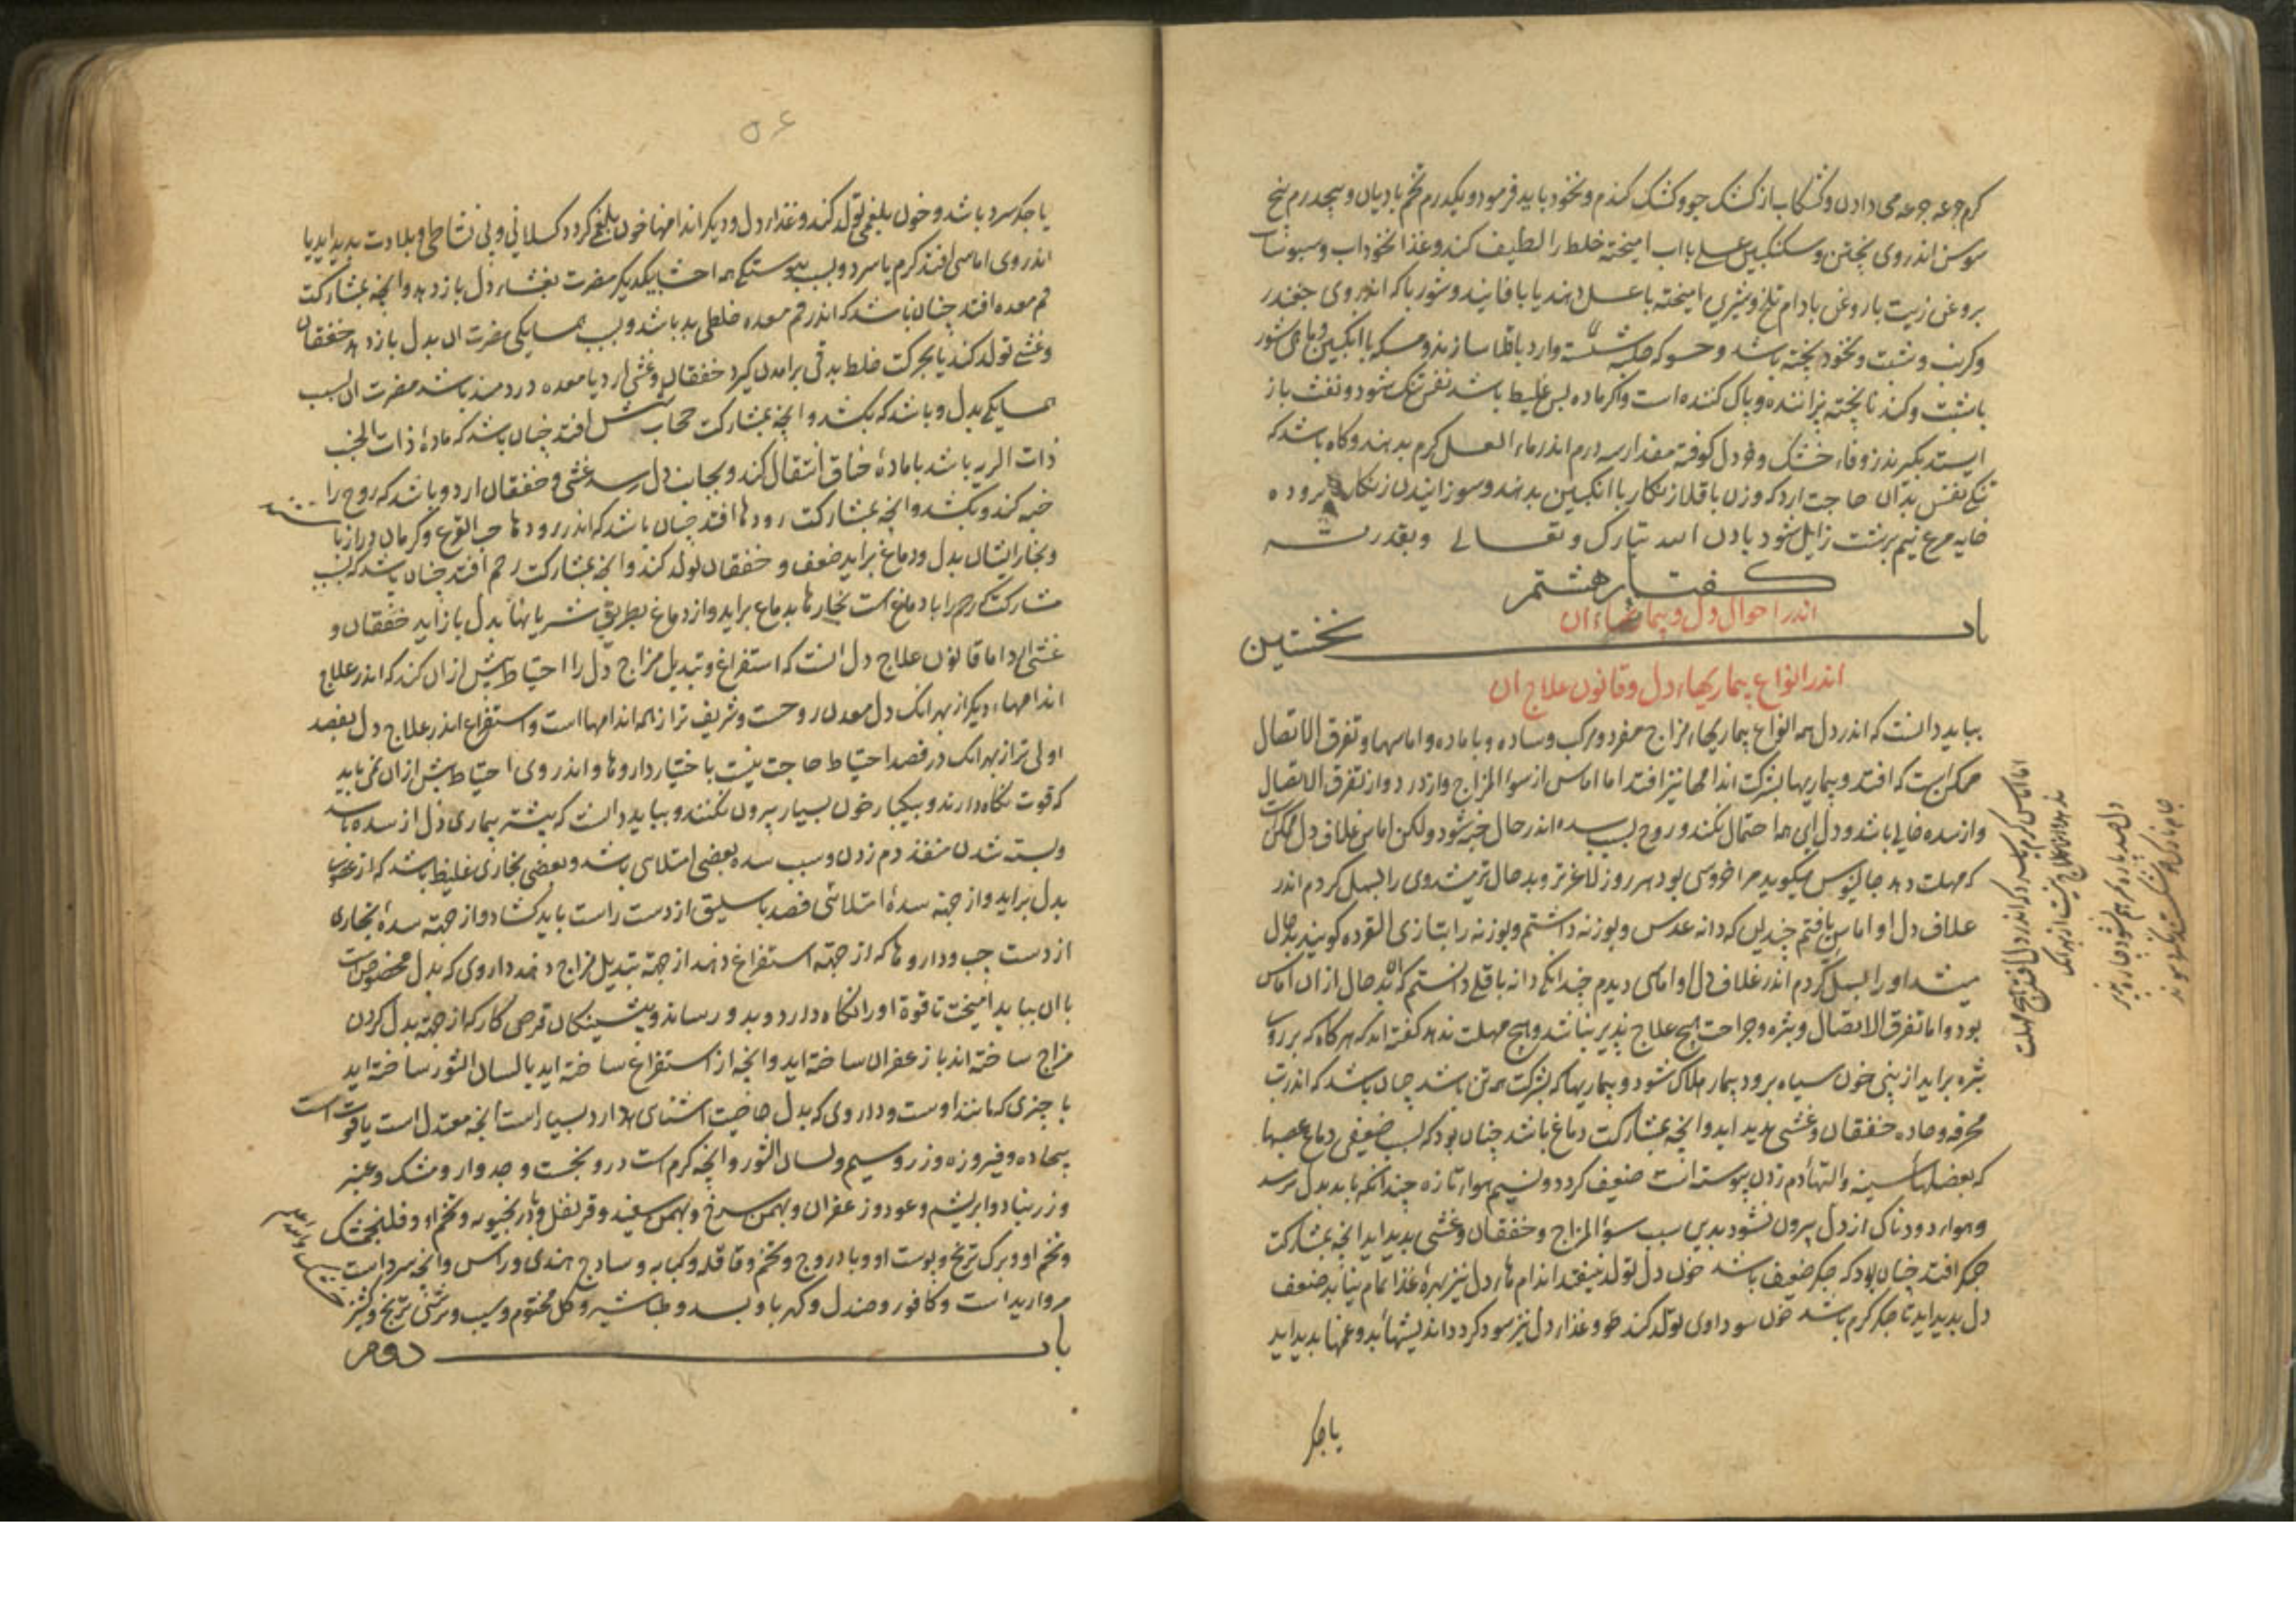 کرم جرعه جرعه می دادن و کشکاب از کشک جو و کشک کندم و نخود باید فرمود و یکدرم تخم بادیان و پنجدرم بیخ
سوسن اندر وی پختن و سکنکبین عسلی با اب امیخته خلط را لطیف کند و غذا نخوداب و سبوناب
بروغن زیت یا روغن بادام تلخ و شیرین امیخته با عسل دهند یا با فانید و شوربا که اندر وی چغندر
و کرنب و شبت و نخود پخته باشد و حسو که حلبه شسته وارد باقلا سازند و مسکه با انکبین و ماهی شور
با شبت و کندنا پخته پزاننده و پاک کننده است و اکر ماده بس غلیظ باشد نفس تنک شود و نفث باز
ایستد بکیرند زوفاء خشک و خردل کوفته مقدار سه درم اندر ماء العسل کرم بدهند و کاه باشد که
تنکی نفس بدان حاجت ارد که وزن باقلا زنکار با انکبین بدهند و سوزانیدن زنکار بزرده
خایه مرغ نیم برشت زایل شود باذن الله تبارک و تعالی و بقدرته
کفتار هشتم
اندر احوال دل و بیماریهاء ان
باب نخستین
اندر انواع بیماریهاء دل و قانون علاج ان
بباید دانست که اندر دل همه انواع بیماریهاء مزاج مفرد و مرکب و ساده و با ماده و اماسها و تفرق الاتصال
ممکن است که افتد و بیماریها بشرکت اندامها نیز افتد اما اماس از سوء المزاج و از درد و از تفرق الاتصال
و از سده خالی باشد و دل این همه احتمال نکند و روح بسبب سده اندر حال خبه شود ولکن اماس غلاف دل ممکن است
که مهلت دهد جالینوس میکوید مرا خروسی بود هر روز لاغرتر و بدحال تر میشد وی را بسمل کردم اندر
غلاف دل او اماس یافتم چندین که دانه عدس و بوزنه داشتم و بوزنه را بتازی القرده کویند بدحال
میشد او را بسمل کردم اندر غلاف دل او اماسی دیدم چندانکه دانه باقلی دانستم که ان بدحال از ان اماس
بود و اما تفرق الاتصال و بثره و جراحت هیچ علاج پذیر نباشد و هیچ مهلت ندهد کفته اند که هرکاه که بر روی
بثره براید از بینی خون سیاه برود بیمار هلاک شود و بیماریها که بشرکت همه تن باشد چنان باشد که اندر تب
محرقه و حاده خفقان و غشی پدید اید و انچه بمشارکت دماغ باشد چنان بود که بسبب ضعیفی دماغ عصبها
که بعضلهاء سینه و التهاء دم زدن پیوسته است ضعیف کردد و نسیم هواء تازه چندانکه باید بدل نرسد
و هواء دودناک از دل بیرون نشود بدین سبب سوء المزاج و خفقان و غشی پدید اید انچه بمشارکت
جکر افتد چنان بود که جکر ضعیف باشد خون دل تولد نیفتد اندام هاء دل نیز بهره غذا تمام نیابد ضعف
دل پدید اید تا جکر کرم باشد خون سوداوی تولد کند همه و غذاء دل نیز سود کردد اندیشهاء بد و غمها پدید اید
یا جکر
اماس کرم یکسر که اندر دل افتد هیچ مهلت
۵۶
یا جکر سرد باشد و خون بلغمی تولد کند و غذاء دل و دیکر اندامها خون بلغمی کردد کسلانی و بی نشاطی و بلادت پدید اید یا
اندر وی اماسی افتد کرم یا سرد و بسبب پیوستکی همه احشا بیکدیکر مضرت بغشاء دل باز دهد و انچه بمشارکت
فم معده افتد چنان باشد که اندر فم معده خلطی بد باشد و بسبب همسایکی مضرت ان بدل باز دهد خفقان
و غشی تولد کند یا بحرکت خلط بد قی برامدن کیرد خفقان و غشی ارد یا معده دردمند باشد مضرت ان بسبب
همسایکی بدل و باشد که بکشد و انچه بمشارکت حجاب شش افتد چنان باشد که ماده ذات الجنب
ذات الریه باشد یا ماده خناق انتقال کند و بجانب دل رسد غشی و خفقان ارد و باشد که روح را
خبه کند و بکشد و انچه بمشارکت رودها افتد چنان باشد که اندر رودها حب القرع و کرمان دراز باشد
و بخار ایشان بدل و دماغ براید ضعف و خفقان تولد کند و انچه بمشارکت رحم افتد چنان باشد که بسبب
مشارکتی که رحم را با دماغ است بخارها بدماغ براید و از دماغ بطریق شریانها بدل باز اید خفقان و
غشی ارد اما قانون علاج دل انست که استفراغ و تبدیل مزاج دل را احتیاط بیش از ان کند که اندر علاج
اندامهاء دیکر از بهر انک دل معدن روحست و شریف تر از همه اندامها است و استفراغ اندر علاج دل بفصد
اولی تر از بهر انک در فصد احتیاط حاجت نیست باختیار داروها و اندر وی احتیاط بیش از ان نمی باید
که قوت نکاه دارند و بیکبار خون بسیار بیرون نکنند و بباید دانست که بیشتر بیماری دل از سده باشد
و بسته شدن منفذ دم زدن و سبب سده بعضی امتلاسی باشد و بعضی بخاری غلیظ باشد که از عضوی
بدل براید و از جهة سدهٔ امتلائی فصد باسلیق از دست راست باید کشاد و از جهة سدهٔ بخاری
از دست چب و داروها که از جهة استفراغ دهند از جهة تبدیل مزاج دهند داروی که بدل مخصوص است
با ان بباید امیخت تا قوة او را نکاه دارد و بدو رساند و پیشینکان قرص کار که از جهة بدل کردن
مزاج ساخته اند با زعفران ساخته اید و انچه از استفراغ ساخته اید با لسان الثور ساخته اید
با چیزی که مانند اوست و داروی که بدل خاصیت اشنای دارد بسیار است انچه معتدل است یاقوت است
بیجاده و فیروزه و زر و سیم و لسان الثور و انچه کرم است درونجست و جدوار و مشک و عنبر
و زرنباد و ابریشم و عود و زعفران و بهمن سرخ و بهمن سفید و قرنفل و بادرنجبویه و تخم او و فلنجمشک
و تخم او و برک ترنج و پوست او و بادروج و تخم و قاقله و کبابه و سادج هندی و راسن و انچه سرد است
مروارید است و کافور و صندل و کهربا و بسد و طباشیر و کل مختوم و سیب و ترشی ترنج و کشنیز
باب دوم